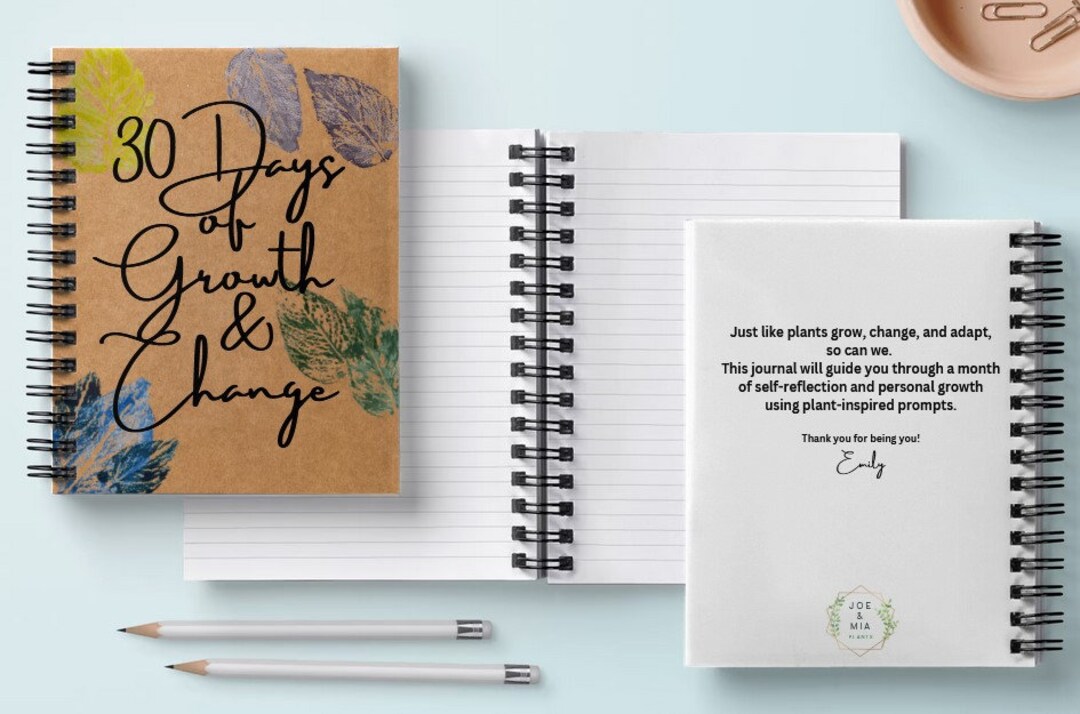 30 Days
of
Growth
&
Change
Just like plants grow, change, and adapt,
so can we.
This journal will guide you through a month
of self-reflection and personal growth
using plant-inspired prompts.
Thank you for being you!
Emily
JOE
&
MIA
PLANTS